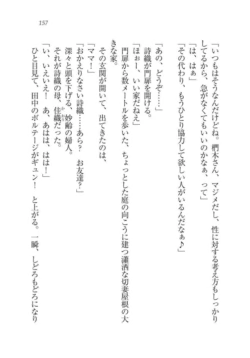 157
「いつもはそうなんだけどね。椚木さん、マジメだし、性に対する考え方もしっかり
してるから、急がなくてもいいのかなぁ、って」
「は、はぁ」
「その代わり、もうひとり協力して欲しい人がいるんだなぁ♪」
「あの、どうぞ……」
詩織が門扉を開ける。
「はぉー、いい家だねえ」
門扉から数メートルを歩いた、ちょっとした庭の向こうに建つ瀟洒な切妻屋根の大
きな家。
その玄関が開いて、出てきたのは、
「ママ！」
「おかえりなさい詩織……あら？　お友達？」
深々と頭を下げる、妙齢の婦人。
それが詩織の母、佳織だった。
「い、いえいえ！　あ、あはは、ははー！」
ひと目見て、田中のボルテージがギュン！　と上がる。一瞬、しどろもどろになり